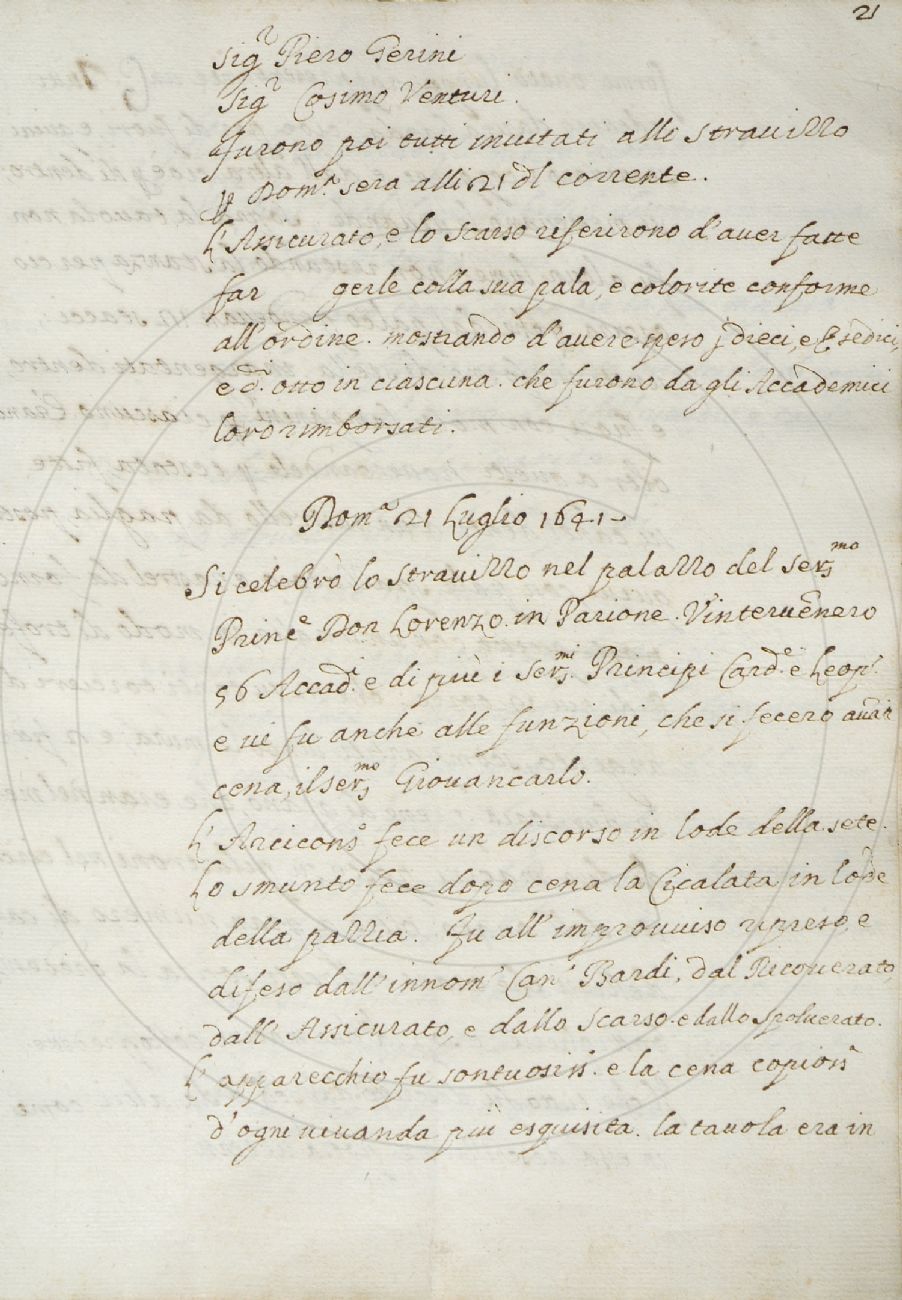 21
Sig.r Piero Gerini
Sig.r Cosimo Venturi.
Furono poi tutti inuitati allo strauizzo
p Dom.a sera alli 21 dl corrente.
L'Assicurato, e lo scarso riferirono d'auer fatte
far gerle colla sua pala, e colorite conforme
all'ordine. mostrando d'auere speso dieci, e sedici,
e d. otto in ciascuna. che furono da gli Accademici
loro rimborsati.
Dom.a 21 Luglio 1641.
Si celebrò lo strauizzo nel palazzo del Ser.mo
Princ.e Don Lorenzo in Parione. V'interuennero
56 Accad.i e di più i Ser.mi Principi Card.e e Leop.o
e ui fu anche alle funzioni, che si fecero auanti
cena, il Ser.mo Giouancarlo.
L'Arcicons.o fece un discorso in lode della sete.
Lo smunto fece dopo cena la Cicalata in lode
della pazzia. Fu all'improuuiso ripreso, e
difeso dall'innom.o Can.o Bardi, dal Ricouerato,
dall'Assicurato, e dallo scarso. e dallo spoluerato.
L'apparecchio fu sontuosiss.o e la cena copios.a
d'ogni uiuanda più esquisita. la tauola era in